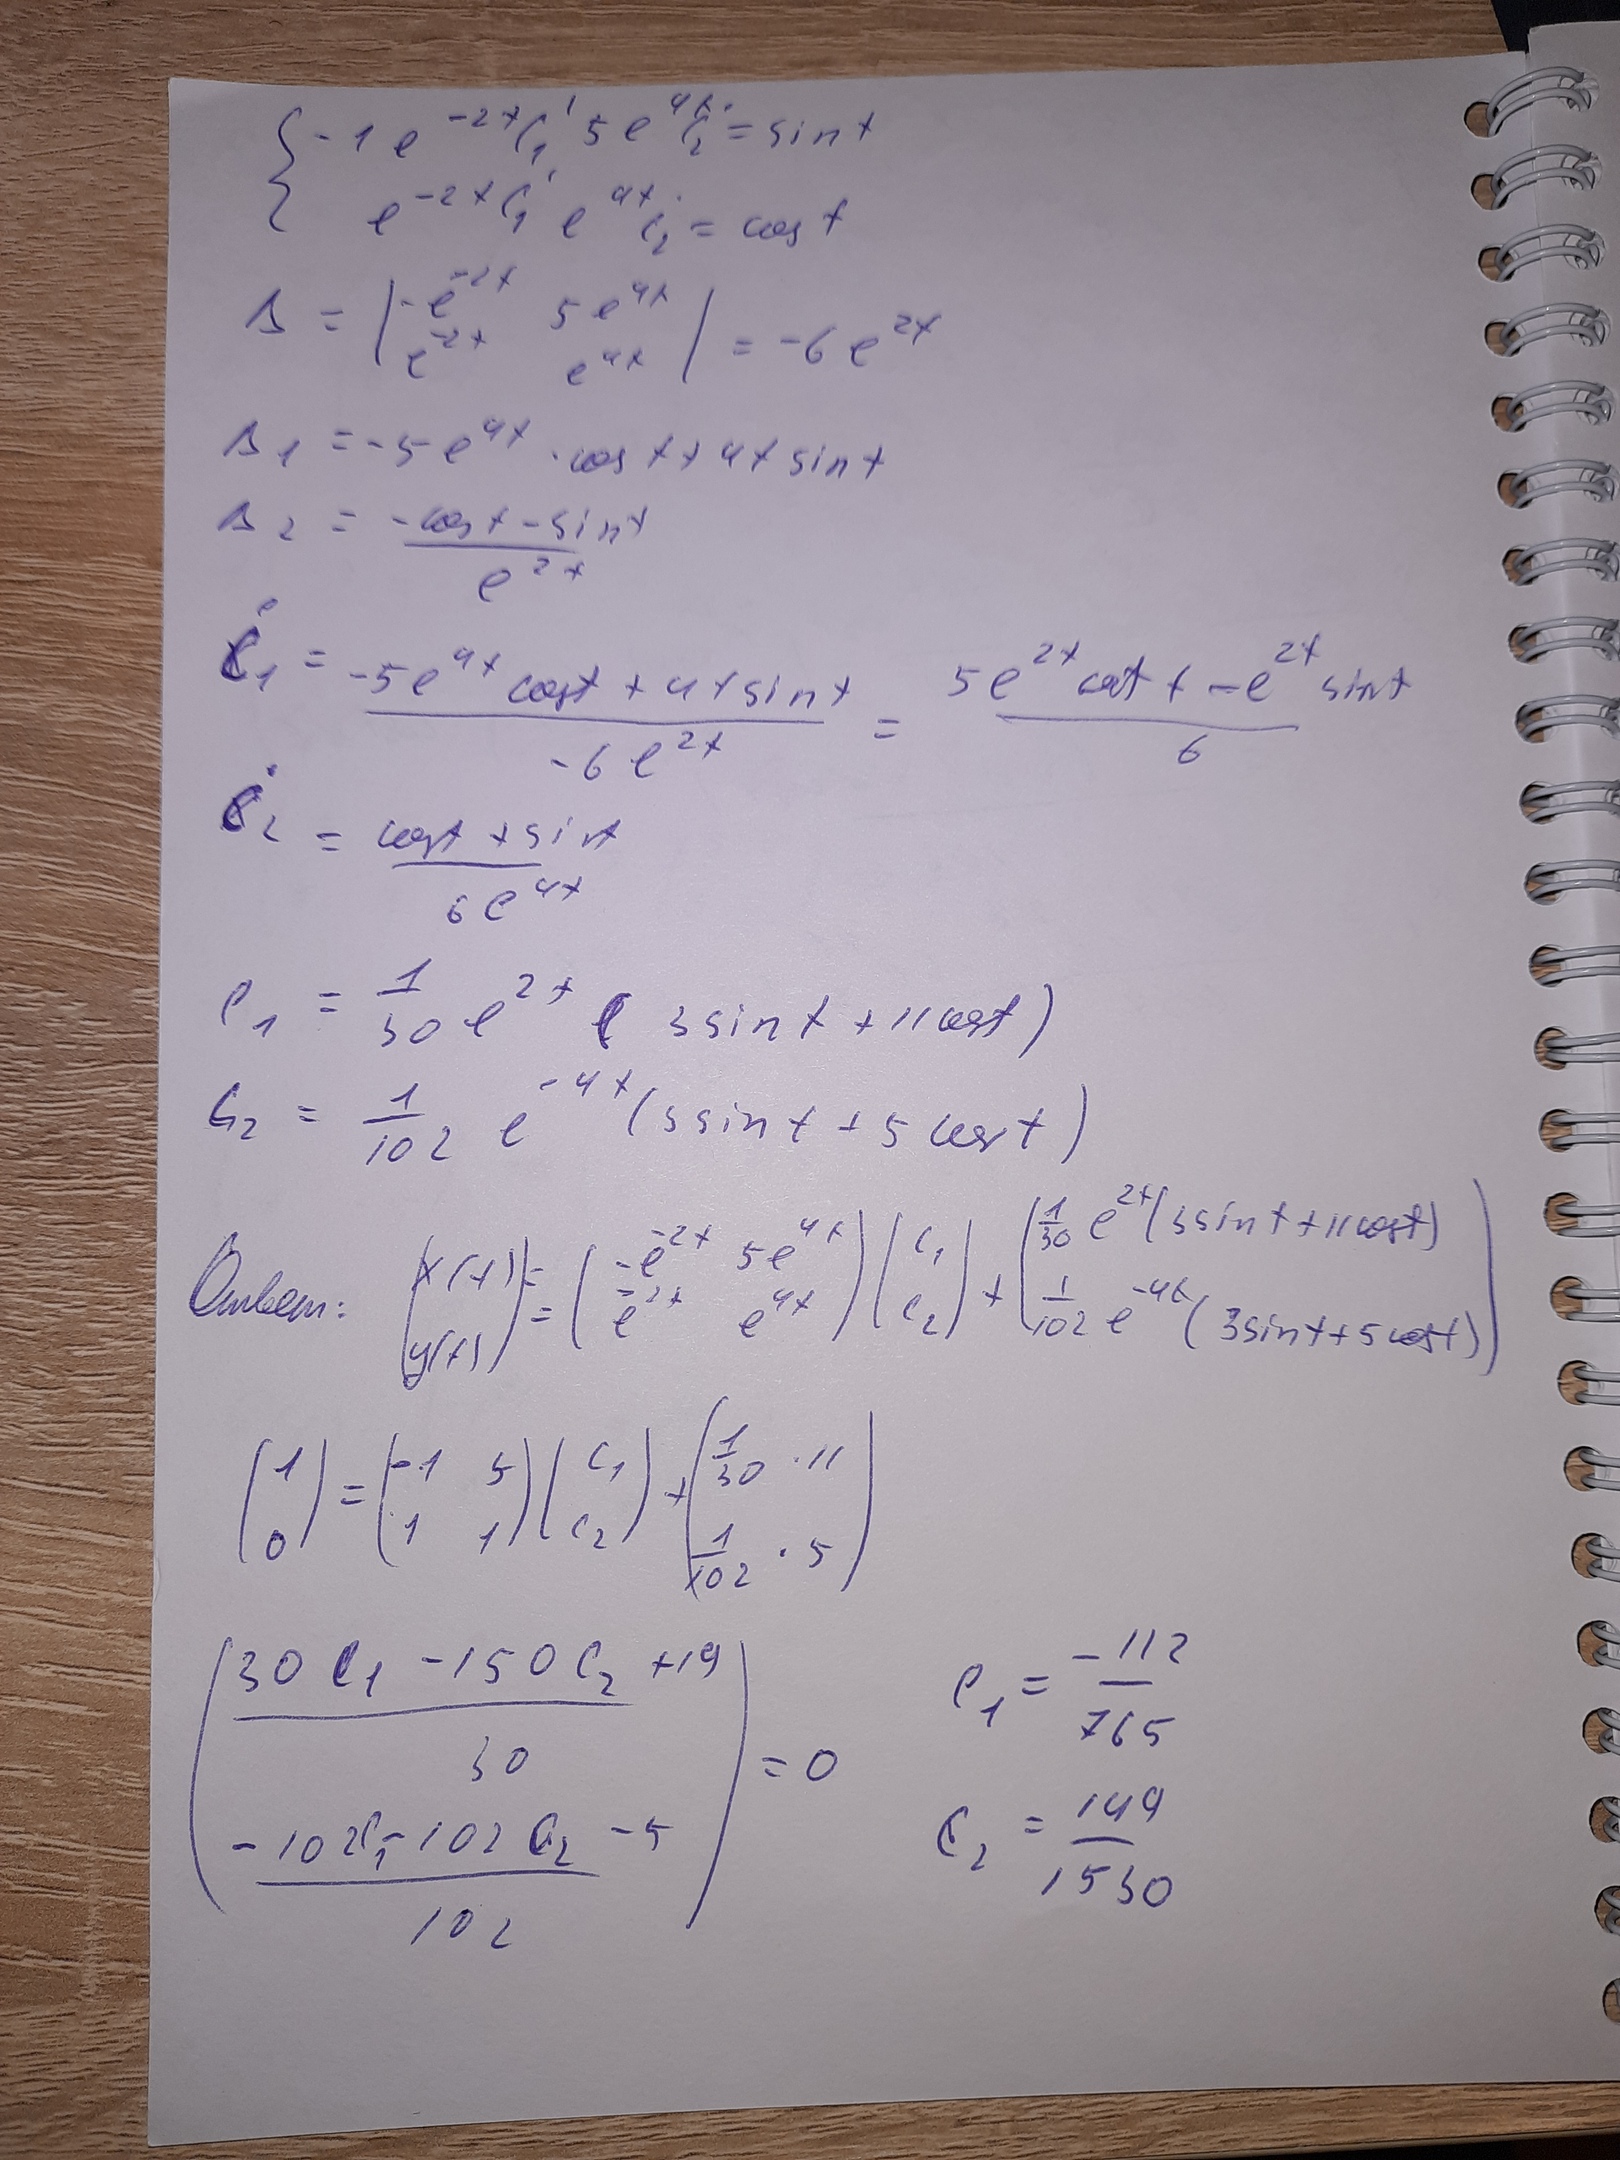 { -1 e^{-2t} C_1' 5 e^{4t} C_2' = sin t
e^{-2t} C_1' e^{4t} C_2' = cos t
Δ = | -e^{-2t} 5e^{4t} |
| e^{-2t} e^{4t} | = -6 e^{2t}
Δ_1 = -5 e^{4t} · cos t + 4t sin t
Δ_2 = (-cos t - sin t) / e^{2t}
C_1' = (-5e^{4t} cos t + 4t sin t) / (-6 e^{2t}) = (5 e^{2t} cos t + - e^{2t} sin t) / 6
C_2' = (cos t + sin t) / (6 e^{4t})
C_1 = 1/30 e^{2t} ( 3 sin t + 11 cos t )
C_2 = 1/102 e^{-4t} (3 sin t + 5 cos t )
Ответ: ( x(t) ) = ( -e^{-2t} 5e^{4t} ) ( C_1 ) + ( 1/30 e^{2t} (3 sin t + 11 cos t) )
( y(t) ) = ( e^{-2t} e^{4t} ) ( C_2 ) ( 1/102 e^{-4t} ( 3 sin t + 5 cos t) )
( 1 ) = ( -1 5 ) ( C_1 ) + ( 1/30 · 11 )
( 0 ) ( 1 1 ) ( C_2 ) ( 1/102 · 5 )
( (30 C_1 - 150 C_2 + 19) / 30 ) = 0
( (-102 C_1 - 102 C_2 - 5) / 102 )
C_1 = -112 / 765
C_2 = 149 / 1530